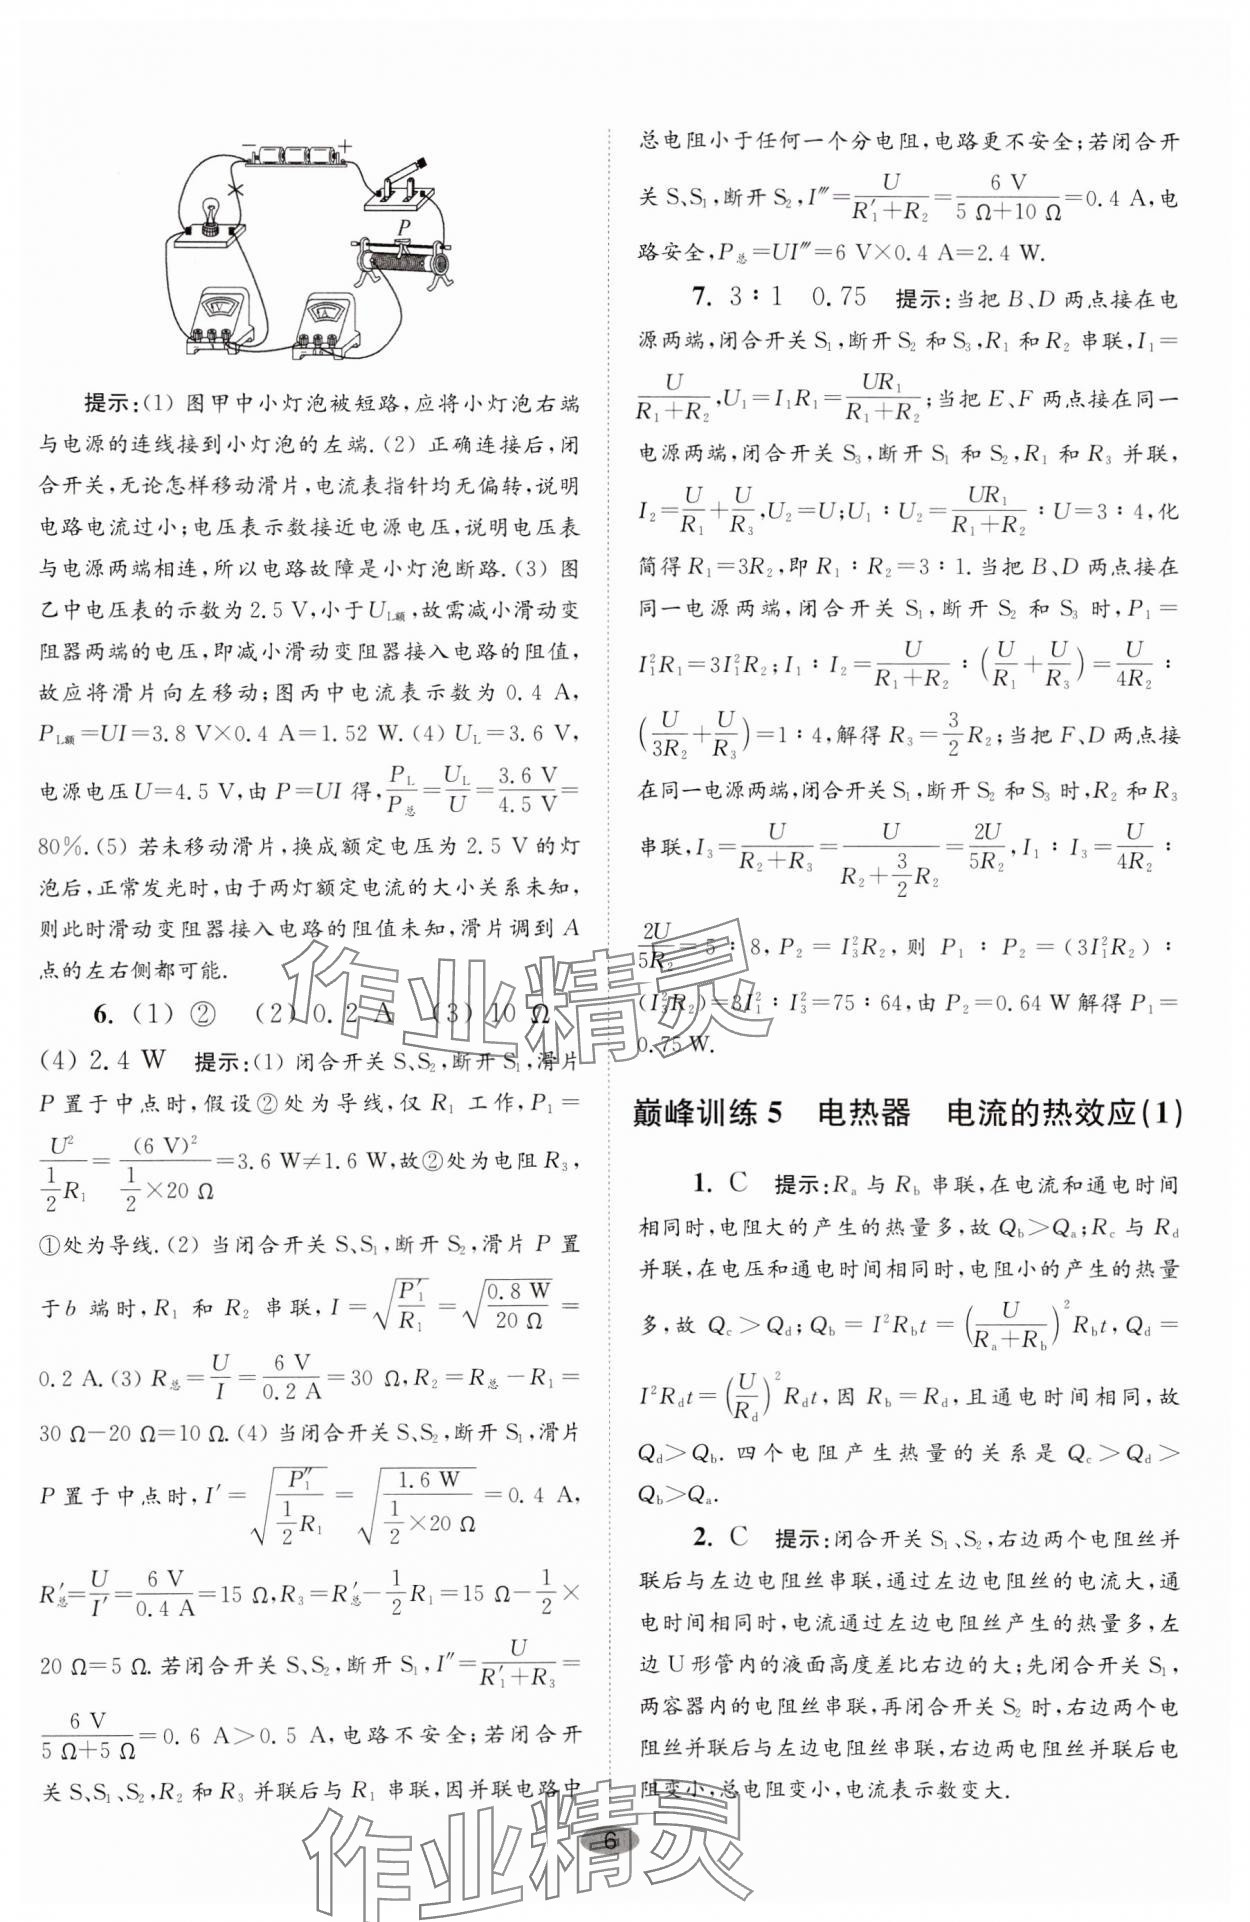 − +
P
V
A
提示:(1) 图甲中小灯泡被短路,应将小灯泡右端
与电源的连线接到小灯泡的左端.(2) 正确连接后,闭
合开关,无论怎样移动滑片,电流表指针均无偏转,说明
电路电流过小;电压表示数接近电源电压,说明电压表
与电源两端相连,所以电路故障是小灯泡断路.(3) 图
乙中电压表的示数为 2.5 V,小于U_{L额},故需减小滑动变
阻器两端的电压,即减小滑动变阻器接入电路的阻值,
故应将滑片向左移动;图丙中电流表示数为 0.4 A,
P_{L额}=UI=3.8 V×0.4 A=1.52 W.(4) U_L=3.6 V,
电源电压U=4.5 V,由 P=UI 得,\frac{P_L}{P_总}=\frac{U_L}{U}=\frac{3.6 V}{4.5 V}=
80%.(5) 若未移动滑片,换成额定电压为 2.5 V 的灯
泡后,正常发光时,由于两灯额定电流的大小关系未知,
则此时滑动变阻器接入电路的阻值未知,滑片调到 A
点的左右侧都可能.
6. (1) ② (2) 0.2 A (3) 10 Ω
(4) 2.4 W 提示:(1) 闭合开关 S、S₂,断开 S₁,滑片
P 置于中点时,假设②处为导线,仅 R₁ 工作,P₁=
\frac{U²}{\frac{1}{2}R₁}=\frac{(6 V)²}{\frac{1}{2}×20 Ω}=3.6 W≠1.6 W,故②处为电阻 R₃,
①处为导线.(2) 当闭合开关 S、S₁,断开 S₂,滑片 P 置
于 b 端时,R₁ 和 R₂ 串联,I=\sqrt{\frac{P₁′}{R₁}}=\sqrt{\frac{0.8 W}{20 Ω}}=
0.2 A.(3) R_总=\frac{U}{I}=\frac{6 V}{0.2 A}=30 Ω,R₂=R_总−R₁=
30 Ω−20 Ω=10 Ω.(4) 当闭合开关 S、S₂,断开 S₁,滑片
P 置于中点时,I′=\sqrt{\frac{P₁″}{\frac{1}{2}R₁}}=\sqrt{\frac{1.6 W}{\frac{1}{2}×20 Ω}}=0.4 A,
R_总′=\frac{U}{I′}=\frac{6 V}{0.4 A}=15 Ω,R₃=R_总′−\frac{1}{2}R₁=15 Ω−\frac{1}{2}×
20 Ω=5 Ω.若闭合开关 S、S₂,断开 S₁,I″=\frac{U}{R₁′+R₃}=
\frac{6 V}{5 Ω+5 Ω}=0.6 A>0.5 A,电路不安全;若闭合开
关 S、S₁、S₂,R₂ 和 R₃ 并联后与 R₁ 串联,因并联电路中
总电阻小于任何一个分电阻,电路更不安全;若闭合开
关 S、S₁,断开 S₂,I‴=\frac{U}{R₁′+R₂}=\frac{6 V}{5 Ω+10 Ω}=0.4 A,电
路安全,P_总=UI‴=6 V×0.4 A=2.4 W.
7. 3∶1 0.75 提示:当把 B、D 两点接在电
源两端,闭合开关 S₁,断开 S₂ 和 S₃,R₁ 和 R₂ 串联,I₁=
\frac{U}{R₁+R₂},U₁=I₁R₁=\frac{UR₁}{R₁+R₂};当把 E、F 两点接在同一
电源两端,闭合开关 S₃,断开 S₁ 和 S₂,R₁ 和 R₃ 并联,
I₂=\frac{U}{R₁}+\frac{U}{R₃},U₂=U;U₁∶U₂=\frac{UR₁}{R₁+R₂}∶U=3∶4,化
简得 R₁=3R₂,即 R₁∶R₂=3∶1.当把 B、D 两点接在
同一电源两端,闭合开关 S₁,断开 S₂ 和 S₃ 时,P₁=
I₁²R₁=3I₁²R₂;I₁∶I₂=\frac{U}{R₁+R₂}∶(\frac{U}{R₁}+\frac{U}{R₃})=\frac{U}{4R₂}∶
(\frac{U}{3R₂}+\frac{U}{R₃})=1∶4,解得 R₃=\frac{3}{2}R₂;当把 F、D 两点接
在同一电源两端,闭合开关S₁,断开 S₂ 和 S₃ 时,R₂ 和 R₃
串联,I₃=\frac{U}{R₂+R₃}=\frac{U}{R₂+\frac{3}{2}R₂}=\frac{2U}{5R₂},I₁∶I₃=\frac{U}{4R₂}∶
\frac{2U}{5R₂}=5∶8,P₂=I₃²R₂,则 P₁∶P₂=(3I₁²R₂)∶
(I₃²R₂)=3I₁²∶I₃²=75∶64,由 P₂=0.64 W 解得 P₁=
0.75 W.
巅峰训练 5 电热器 电流的热效应(1)
1. C 提示:R_a 与 R_b 串联,在电流和通电时间
相同时,电阻大的产生的热量多,故 Q_b>Q_a;R_c 与 R_d
并联,在电压和通电时间相同时,电阻小的产生的热量
多,故 Q_c>Q_d;Q_b=I²R_bt=(\frac{U}{R_a+R_b})²R_bt,Q_d=
I²R_dt=(\frac{U}{R_d})²R_dt,因 R_b=R_d,且通电时间相同,故
Q_d>Q_b.四个电阻产生热量的关系是 Q_c>Q_d>
Q_b>Q_a.
2. C 提示:闭合开关 S₁、S₂,右边两个电阻丝并
联后与左边电阻丝串联,通过左边电阻丝的电流大,通
电时间相同时,电流通过左边电阻丝产生的热量多,左
边 U 形管内的液面高度差比右边的大;先闭合开关 S₁,
两容器内的电阻丝串联,再闭合开关 S₂ 时,右边两个电
阻丝并联后与左边电阻丝串联,右边两电阻丝并联后电
阻变小,总电阻变小,电流表示数变大.
6
作业精灵
作业精灵